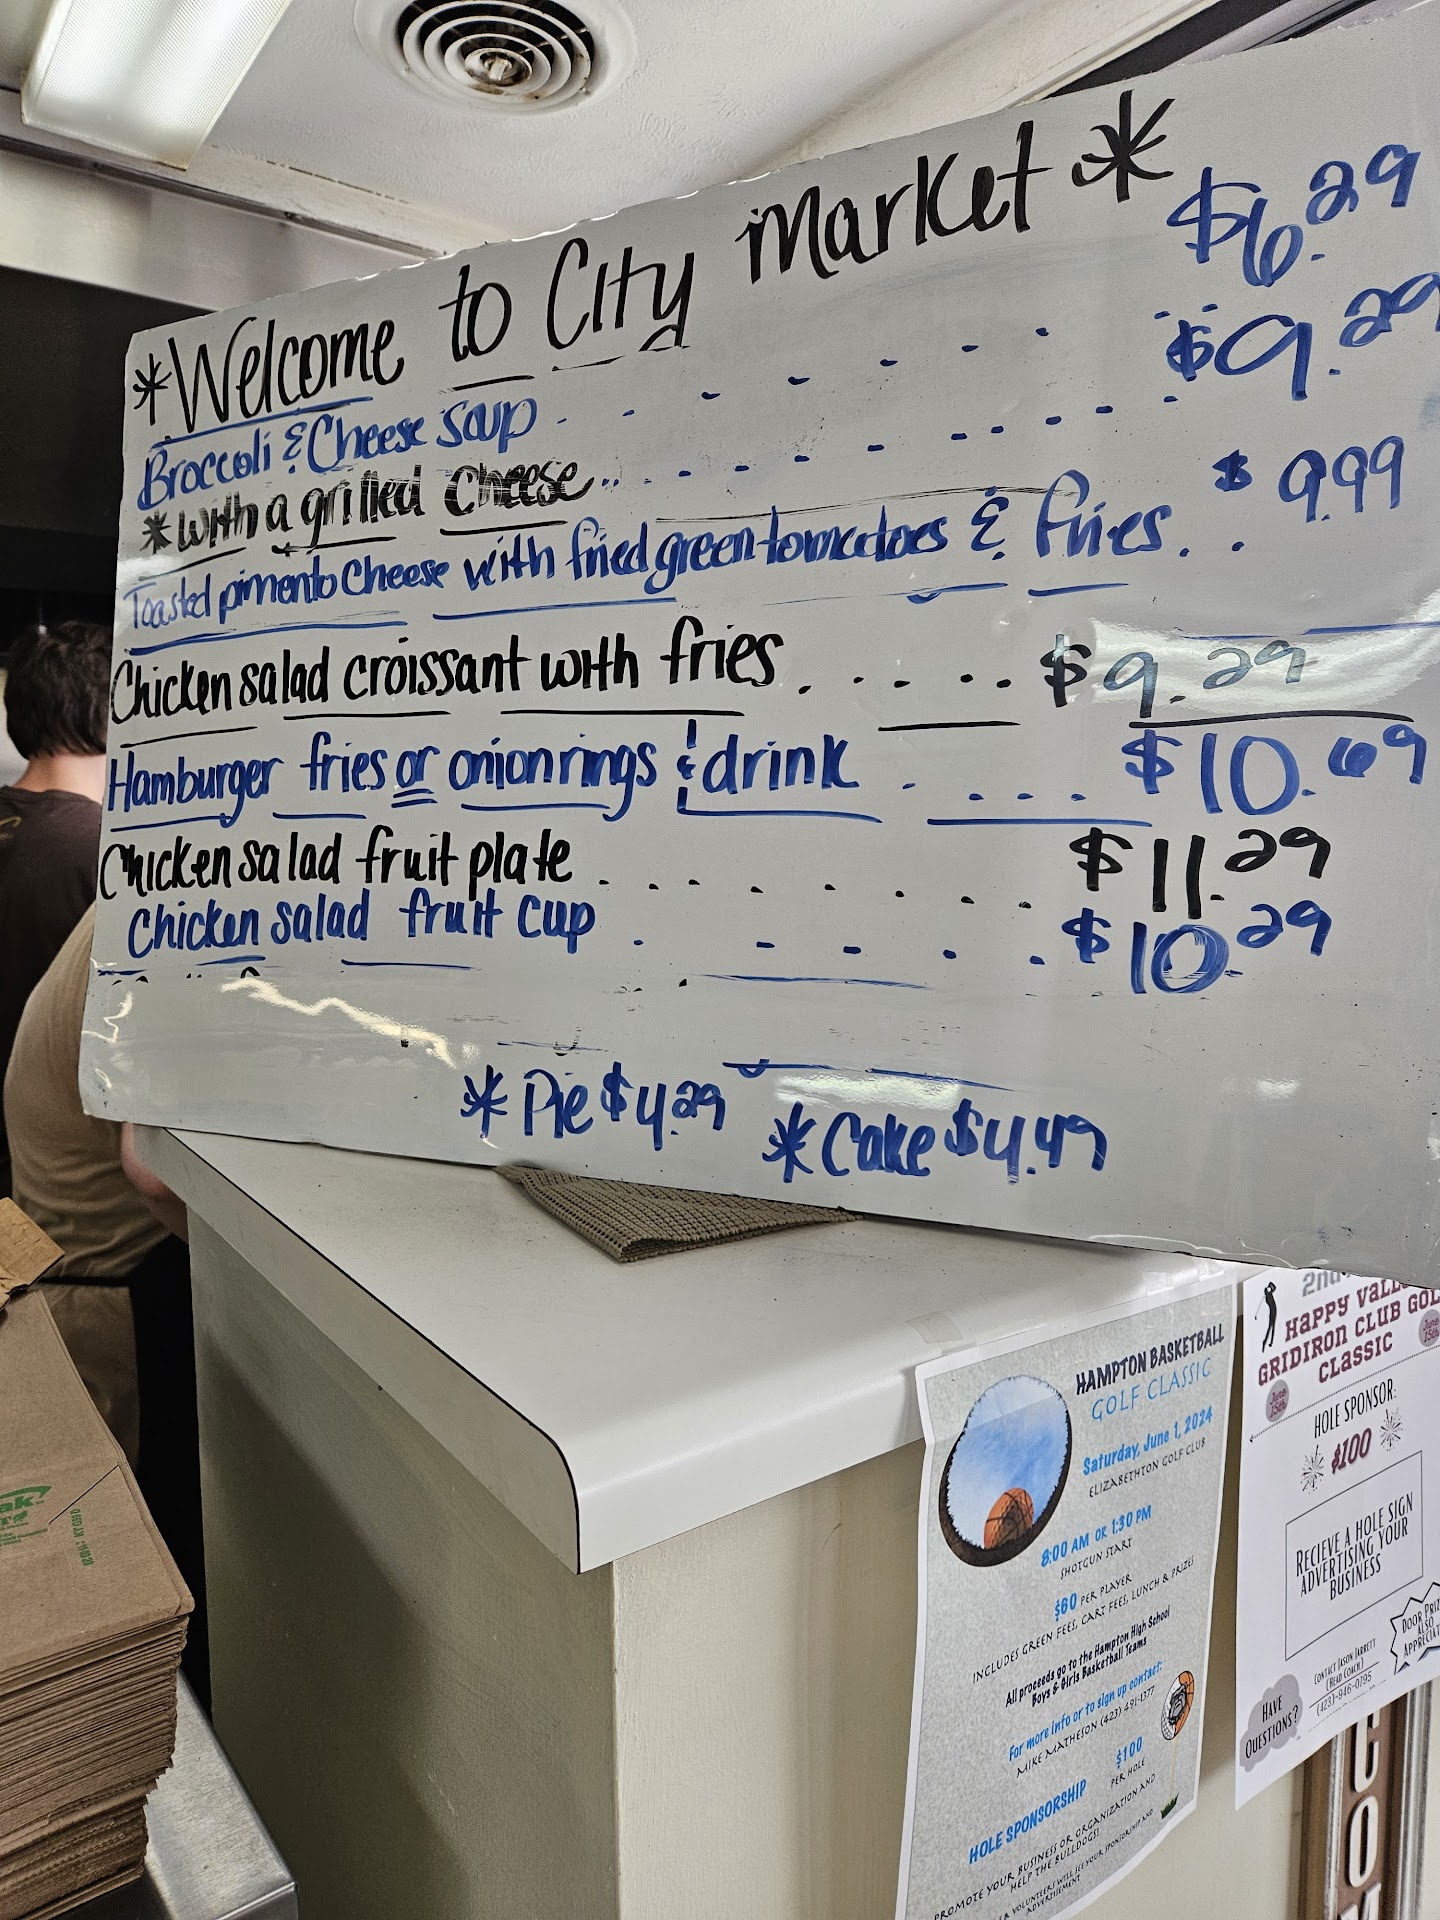 *Welcome to City Market*
Broccoli & Cheese Soup . . . . . . . . $6.29
*with a grilled cheese . . . . . . . . . $9.29
Toasted pimento cheese with fried green tomatoes & fries. . $9.99
Chicken salad croissant with fries . . . . . $9.29
Hamburger fries or onion rings & drink . . . . $10.69
Chicken salad fruit plate . . . . . . . . $11.29
Chicken salad fruit cup . . . . . . $10.29
*Pie $4.29
*Cake $4.49
HAMPTON BASKETBALL
GOLF CLASSIC
Saturday, June 1, 2024
ELIZABETHTON GOLF CLUB
8:00 AM OR 1:30 PM
SHOTGUN START
$60 PER PLAYER
INCLUDES GREEN FEES, CART FEES, LUNCH & PRIZES
All proceeds go to the Hampton High School
Boys & Girls Basketball Teams
For more info or to sign up contact:
MIKE MATHESON (423) 491-1377
HOLE SPONSORSHIP
$100
PER HOLE
PROMOTE YOUR BUSINESS OR ORGANIZATION AND
HELP THE BULLDOGS!
& VOLUNTEERS WILL SEE YOUR SPONSORSHIP AND
ADVERTISEMENT
2nd
HAPPY VALL
GRIDIRON CLUB GOL
CLASSIC
June 15th
June 15th
HOLE SPONSOR:
$100
RECIEVE A HOLE SIGN
ADVERTISING YOUR
BUSINESS
DOOR PRIZ
ALSO
APPRECIAT
CONTACT JASON JARRETT
(HEAD COACH)
(423)-946-0795
HAVE
QUESTIONS?